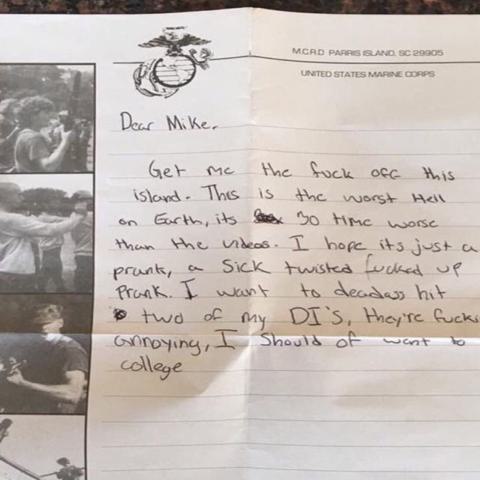 M.C.R.D PARRIS ISLAND, SC 29905
UNITED STATES MARINE CORPS
Dear Mike,
Get me the fuck off this
island. This is the worst Hell
on Earth, its 30 time worse
than the videos. I hope its just a
prank, a sick twisted fucked up
Prank. I want to deadass hit
two of my DI's, they're fuckin
annoying, I should of went to
college